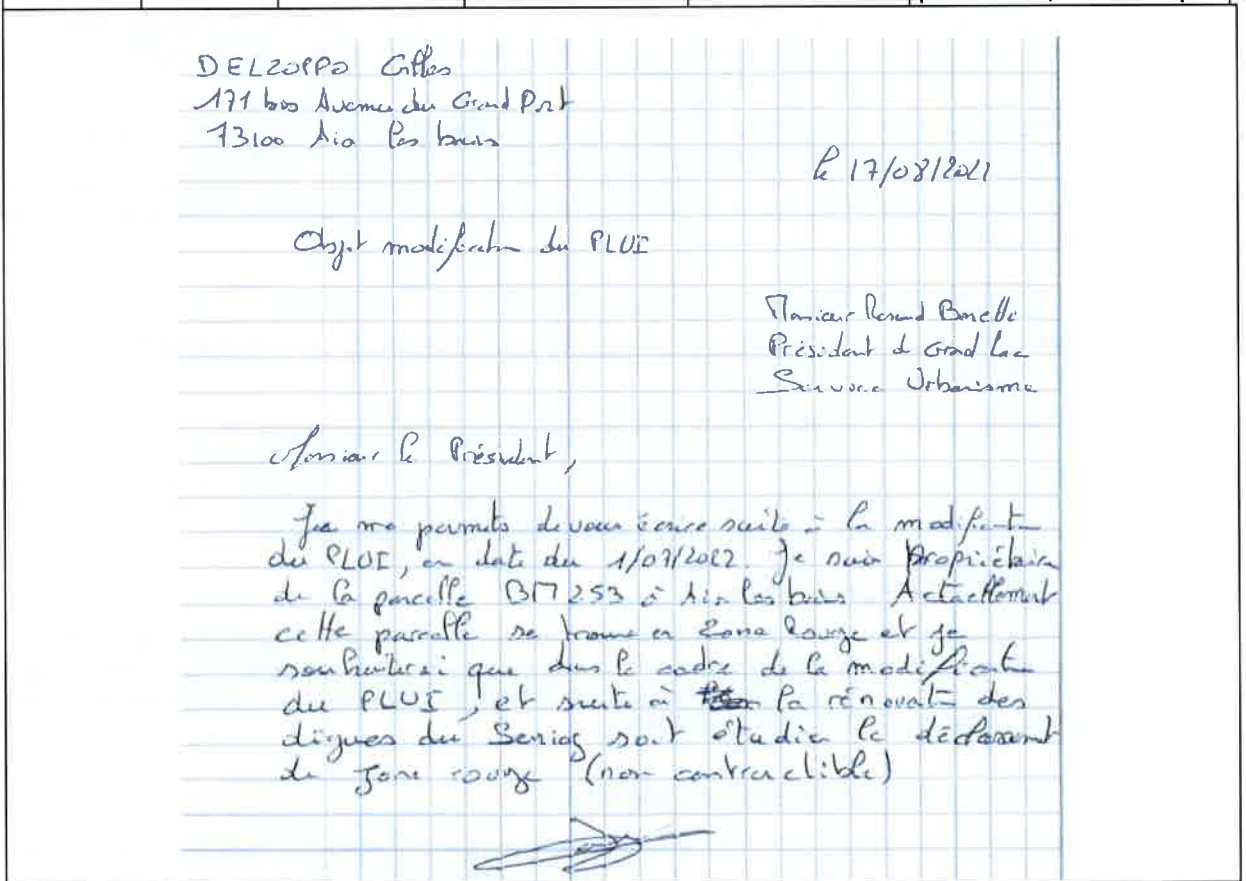 DELZOPPO Gilles
171 bis Avenue du Grand Port
73100 Aix les bains
le 17/08/2022
Objet modification du PLUI
Monsieur Renaud Beretti
Président de Grand Lac
Service Urbanisme
Monsieur le Président,
Je me permets de vous écrire suite à la modification
du PLUI, en date du 1/07/2022. Je suis propriétaire
de la parcelle BM 253 à Aix les bains Actuellement
cette parcelle se trouve en zone Rouge et je
souhaiterai que dans le cadre de la modification
du PLUI, et suite à la rénovation des
digues du Sierroz soit étudier le déclassement
de zone rouge (non contructible)